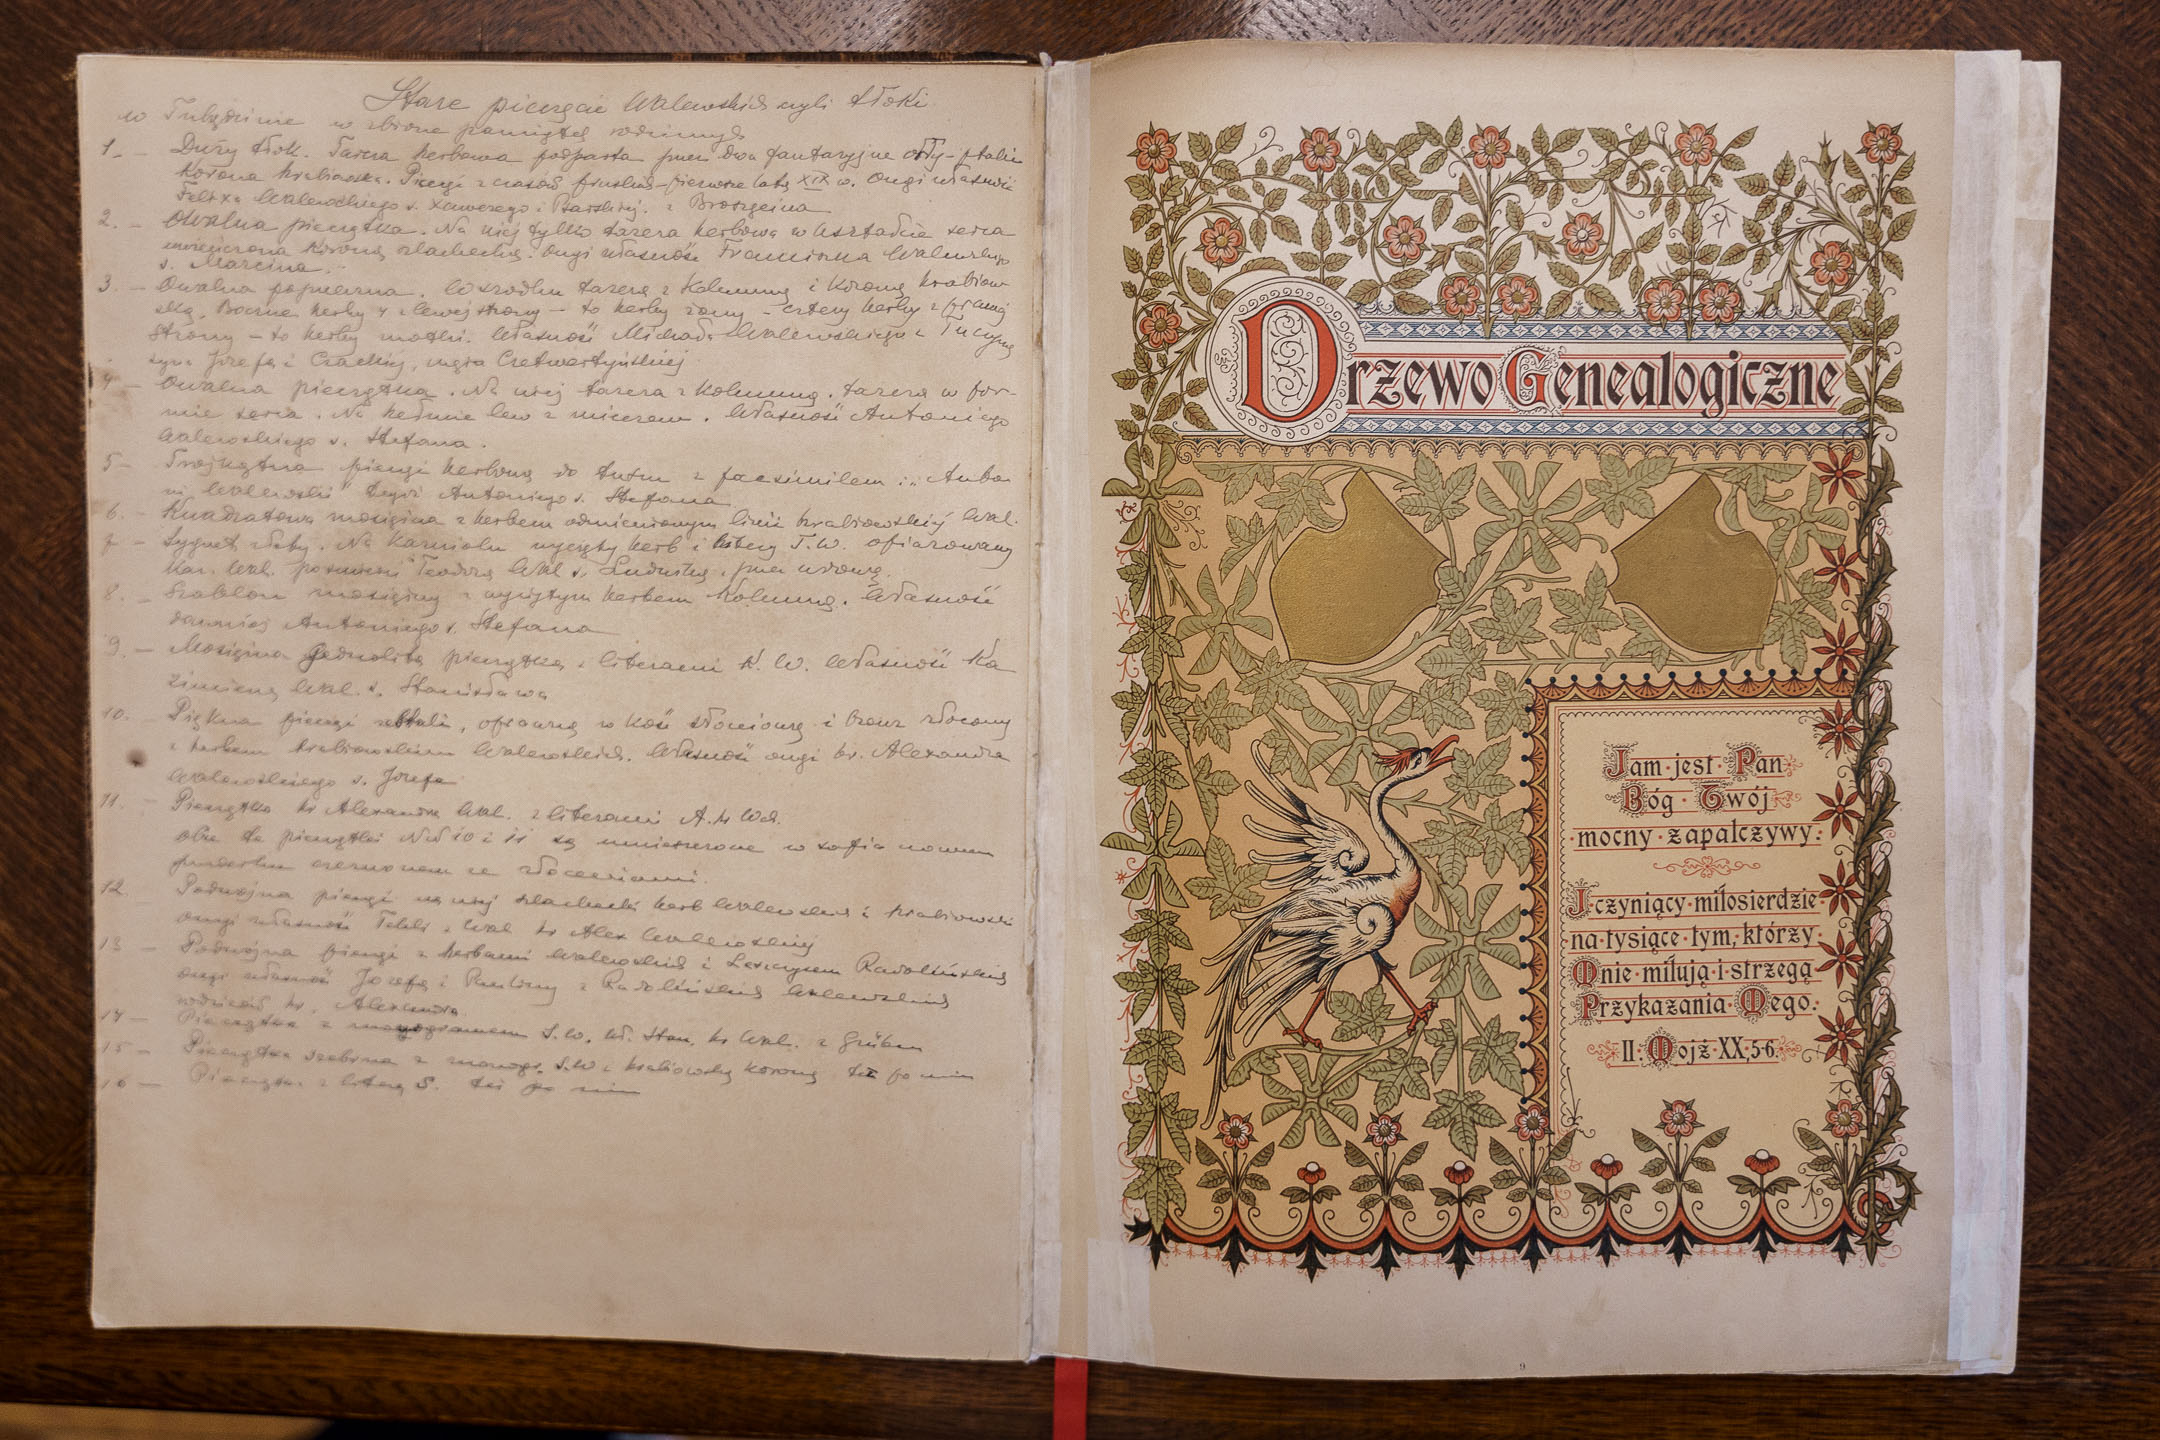 Stare pieczęcie Walewskich czyli tłoki
w Tubądzinie w zbiorze pamiątek rodzinnych
1. – Duży tłok. Tarcza herbowa podparta przez dwa fantazyjne orły-ptaki
Korona hrabiowska. Pieczęć z czasów pruskich – pierwsze lata XIX w. Ongi własność
Felixa Walewskiego s. Xawerego i Barskiej. z
2. – Owalna pieczątka. Na niej tylko tarcza herbowa w kształcie serca
uwieńczona koroną szlachecką. Ongi własność Franciszka Walewskiego
s. Marcina.
3. – Owalna poprzeczna. W środku tarcza z Kolumną i Koroną hrabiow-
ską. Boczne herby 4 z lewej strony – to herby żony – cztery herby z prawej
strony – to herby matki. Własność Michała Walewskiego z Tuczyna
syna Józefa i Czackiej, męża Czetwertyńskiej
4 – Owalna pieczątka. Na niej tarcza z Kolumną. tarcza w for-
mie serca. Na hełmie lew z mieczem. Własność Antoniego
Walewskiego s. Stefana.
5 – Trójkątna pieczęć herbowa do tuszu z facsimilem: „Anto-
ni Walewski” tegoż Antoniego s. Stefana
6. – Kwadratowa mosiężna z herbem odmienionym linii hrabiowskiej Wal.
7 – Sygnet złoty. Na karniolu wycięty herb i litery T.W. ofiarowany
Kaz. Wal. po śmierci Teodora Wal s. Ludwika, przez wdowę.
8. – Szablon mosiężny z wyciętym herbem Kolumna. Własność
dawniej Antoniego s. Stefana
9. – Mosiężna jednolita pieczątka z literami K. W. Własność Ka
zimierza Wal. s. Stanisława
10. – Piękna pieczęć ze stali, oprawna w kość słoniową i bronz złocony
z herbem hrabiowskim Walewskich. Własność ongi hr. Alexandra
Walewskiego s. Józefa
11. – Pieczątka hr Alexandra Wal. z literami A. hr Wal.
obie te pieczątki NrN 10 i 11 są umieszczone w
pudełku czerwonem ze złoceniami.
12. – Podwójna pieczęć na niej szlachecki herb Walewskich i hrabiowski
ongi własność Tekli z Wal hr Alex Walewskiej
13 – Podwójna pieczęć z herbami Walewskich i Leszczycem Radolińskich
ongi własność Józefa i Pauliny z Radolińskich Walewskich
rodziców hr. Alexandra.
14 – Pieczątka z monogramem S.W. wł. Stan. hr Wal. z Grüben
15 – Pieczątka srebrna z monogr. S.W z hrabiowską koroną też po nim
16 – Pieczątka z literą S. też po nim
Drzewo Genealogiczne
Jam · jest · Pan
Bóg · Twój
· mocny · zapalczywy:
I · czyniący · miłosierdzie
na · tysiące · tym, · którzy ·
Mnie · miłują · i · strzegą
Przykazania · Mego:
II: Mojż · XX, 5-6.
9